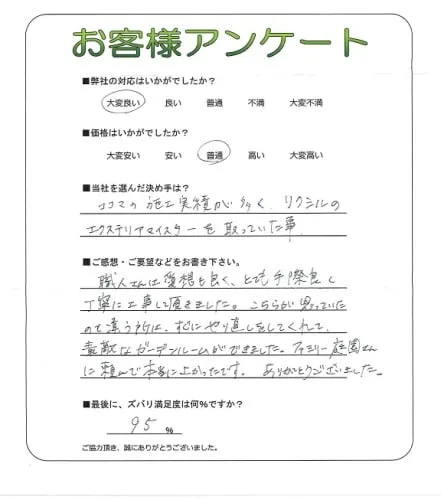 お客様アンケート
■弊社の対応はいかがでしたか?
大変良い 良い 普通 不満 大変不満
■価格はいかがでしたか?
大変安い 安い 普通 高い 大変高い
■当社を選んだ決め手は?
ココマの施工実績が多く、リクシルの
エクステリアマイスターを取っていた事
■ご感想・ご要望などをお書き下さい。
職人さんは愛想も良く、とても手際良く
丁寧に工事して頂きました。こちらが思っていた
のと違う所は、すぐにやり直しをしてくれて、
素敵なガーデンルームができました。ファミリー庭園さん
に頼んで本当に良かったです。ありがとうございました。
■最後に、ズバリ満足度は何%ですか?
95 %
ご協力頂き、誠にありがとうございました。